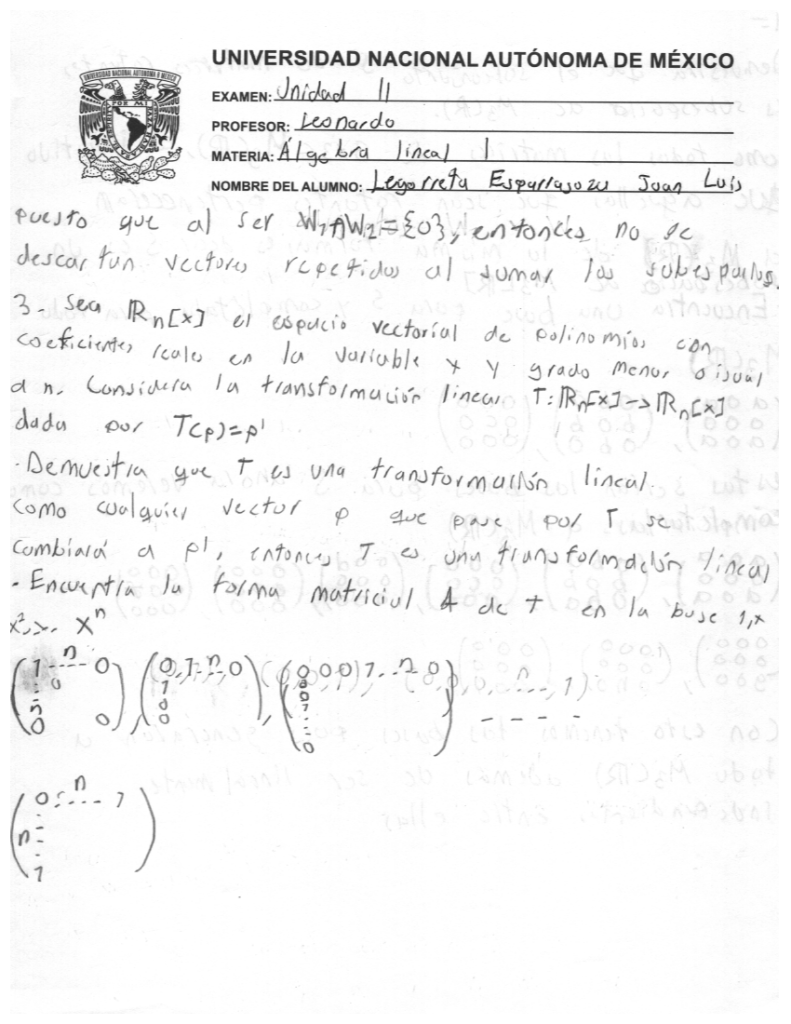 UNIVERSIDAD NACIONAL AUTÓNOMA DE MÉXICO
EXAMEN: Unidad II
PROFESOR: Leonardo
MATERIA: Álgebra lineal I
NOMBRE DEL ALUMNO: Legorreta Esparragoza Juan Luis
puesto que al ser W₁∩W₂={0}, entonces no se
descartan vectores repetidos al sumar los subespacios.
3.- Sea ℝn[x] el espacio vectorial de polinomios con
coeficientes reales en la variable x y grado menor o igual
a n. Considera la transformación lineal T: ℝn[x]→ℝn[x]
dada por T(p)=p'
·Demuestra que T es una transformación lineal.
Como cualquier vector p que pase por T se
cambiará a p', entonces T es una transformación lineal
- Encuentra la forma matricial A de T en la base 1,x
x²... xⁿ